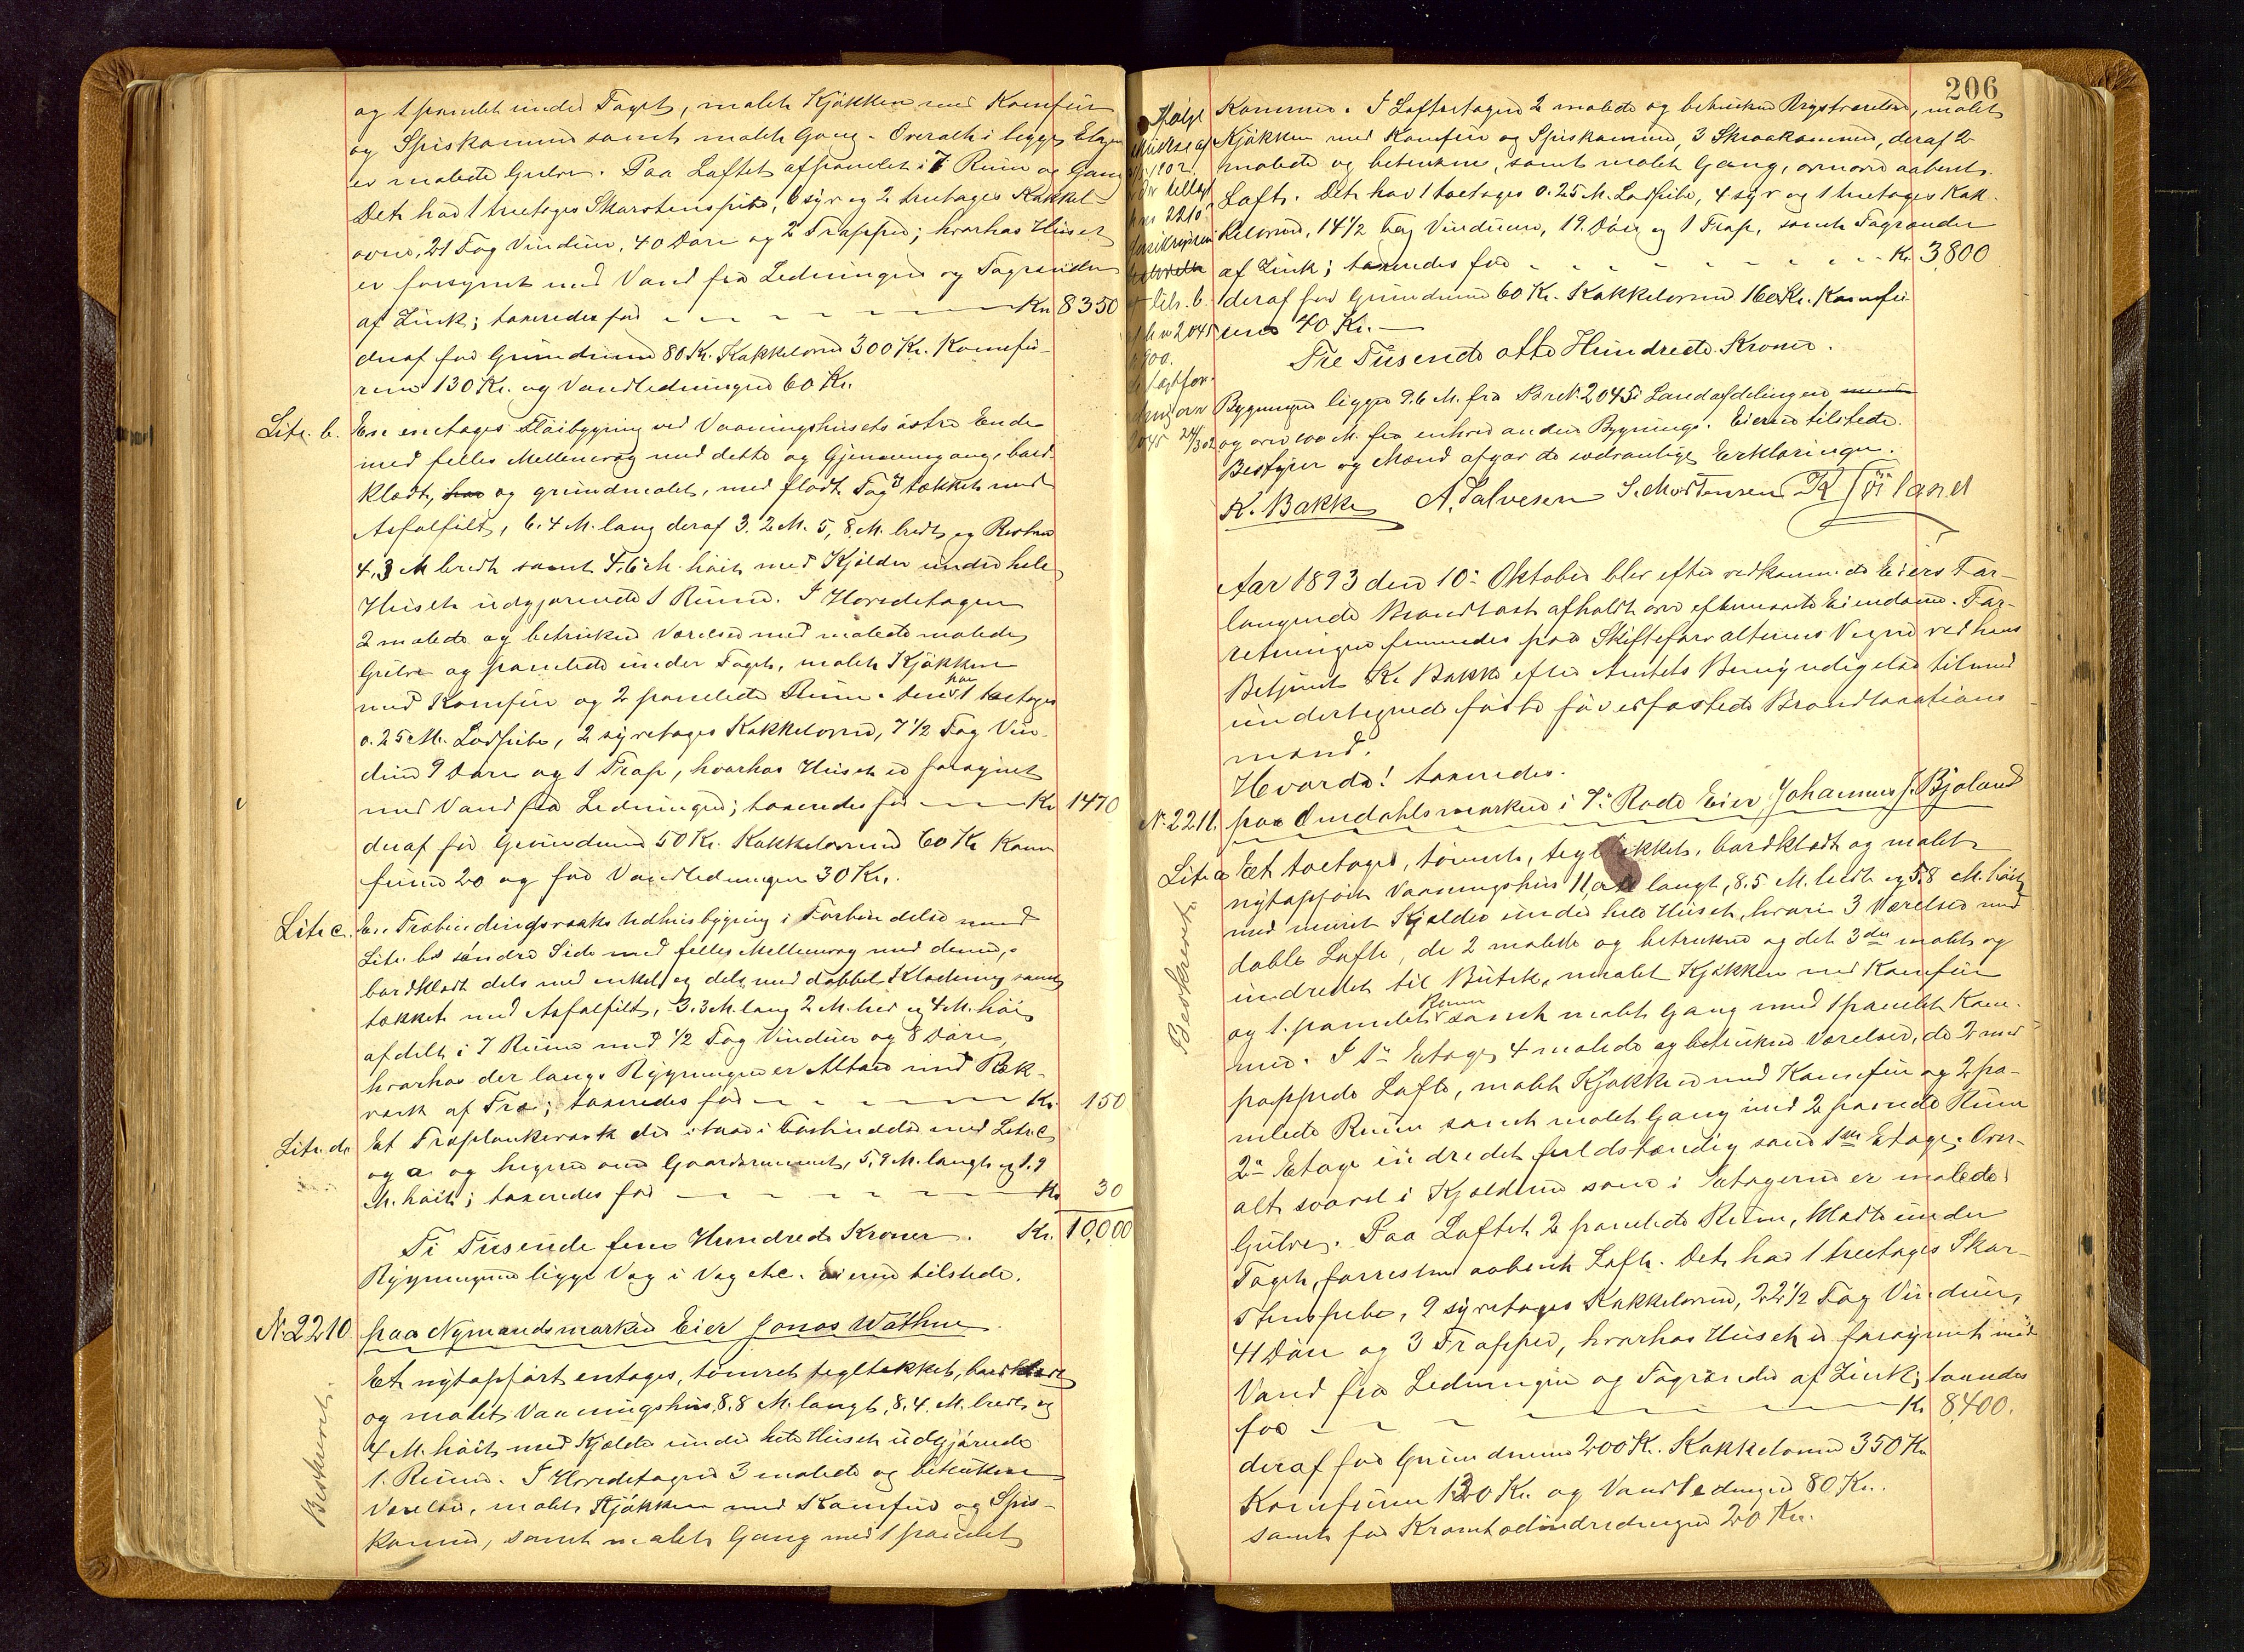 og 1 panelet under Taget, malet Kjøkken med Komfur
og Spiskammer samt malet Gang. Overalt i begge Etager
er malede Gulve. Paa Loftet afpanelet i 7 Rum og Gang
Det har 1 treetages Skorstenspibe, 6 syr og 2 treetages Kakkel-
ovne, 21 Fag Vinduer, 40 Døre og 2 Trapper; hvorhos Huset
er forsynet med Vand fra Ledningen og Tagrender
af Zink; taxeredes for Kr. 8350
deraf for Grundmur 80 Kr. Kakkelovne 300 Kr. Komfu-
rene 130 Kr. og Vandledningen 60 Kr.
Litr. b. En enetages Fløibygning ved Vaaningshusets østre Ende
med felles Mellemvæg med dette og Gjennemgang, bord-
klædt, og grundmalet, med fladt Tag tækket med
Asfalfilt, 6.4 M. lang deraf 3.2 M. 5,8 M. bredt og Resten
4,3 M bredt samt 4,6 M. høit med Kjelder under hele
Huset udgjørende 1 Rum. I Hovedetagen
2 malede og betrukne Værelser med malede malede
Gulve og panelede under Taget, malet Kjøkken
med Komfur og 2 panelede Rum. Den har 1 toetages
0.25 M. Lodpibe, 2 syretages Kakkelovne, 7 1/2 Fag Vin-
duer 9 Døre og 1 Trap, hvorhos Huset er forsynet
med Vand fra Ledningen; taxeredes for Kr. 1470
deraf for Grundmur 50 Kr. Kakkelovne 60 Kr Kom
furene 20 og for Vandledningen 30 Kr.
Litr. c. En Træbindingsværks Udhusbygning i Forbindelse med
Litr. b's søndre Side med felles Mellemvæg med denne,
bordklædt dels med enkel og dels med dobbel Klædning samt
tækket med Asfalfilt, 3.3 M. lang 2 M. bred og 4 M. høi
afdelt i 7 Rum med 1/2 Fag Vinduer og 8 Døre,
hvorhos der langs Bygningen er Altan med Ræk-
værk af Træ; taxeredes for Kr. 150
Litr. d. Et Træplankeværk der staar i Forbindelse med Litr. c
og a og hegner om Gaardsrummet, 5,9 M. langt og 1.9
M. høit; taxeredes for Kr 30
Ti Tusende fem Hundrede Kroner. Kr. 10,000
Bygningerne ligger Væg i Væg etc. Eieren tilstede.
N. 2210. paa Nymandsmarken Eier Jonas Wathne
Beskrevet.
Et nytopført entages, tømret tegltækket, bordklædt
og malet Vaaningshus 8.8 M. langt, 8.4. M. bredt og
4 M. høit med Kjelder under hele Huset udgjørende
1. Rum. I Hovedetagen 3 malede og betrukne
Værelser, malet Kjøkken med Komfur og Spis-
kammer, samt malet Gang med 1 panelet
206
Kammer. I Loftsetagen 2 malede og betrukne Bryst værelser, malet
Kjøkken med Komfur og Spiskammer, 3 Skraakammer, deraf 2
malede og betrukne, samt malet Gang, ovenover aabent
Loft. Det har 1 toetages 0.25 M. Lodpibe, 4 syr og 1 treetages Kak-
kelovne, 14 1/2 Fag Vinduer, 19. Døre og 1 Trap, samt Tagrender
af Zink; taxeredes for Kr. 3800
deraf for Grundmur 60 Kr. Kakkelovne 160 Kr. Komfu-
rene 40 Kr.
Tre Tusende otte Hundrede Kroner.
Bygningen ligger 9.6 M. fra Br. N. 2045 i Landafdelingen
og over 100 M. fra enhver anden Bygning. Eieren tilstede.
Bestyrer og Mænd afgav de sædvanlige Erklæringer.
K. Bakke A. Salvesen S. Mortensen K Törland
Aar 1893 den 10. Oktober blev efter vedkommende Eiers For-
langende Brandtaxt afholdt over efternævnte Eiendomme. For-
retningen fremmedes paa Skifteforvalterens Vegne ved hans
Betjent K. Bakke efter Amtets Bemyndigelse tilmed
undertegnede faste for eisfæstede Brandtaxations
mænd.
Hvorda! taxeredes.
N. 2211. paa Omdahlsmarken i 7. Rode Eier Johannes J. Bjoland
Beskrevet.
Litr. a Et toetages, tømret, tegltækket, bordklædt og malet
nytopført Vaaningshus langt, 8.5 M. bredt og 5,8 M. høit
med muret Kjelder under hele Huset, hvori 3 Værelser med
doble Lofte, de 2 malede og betrukne og det 3die malet og
indredet til Butik, malet Kjøkken med Komfur
og 1. panelet Rum samt malet Gang med 1 panelet Kam-
mer. I 1ste Etage 4 malede og betrukne Værelser, de 2 med
pappede Lofte, malet Kjøkken med Komfur og 2 pa-
nelede Rum samt malet Gang med 2 panelede Rum
2den Etage indredet fuldstændig som 1ste Etage. Over-
alt saavel i Kjelderen som i Etagerne er malede
Gulve. Paa Loftet 2 panelede Rum, klædte under
Taget, forresten aabent Loft. Det har 1 treetages Skor-
stenspibe, 9 syretages Kakkelovne, 22 1/2 Fag Vinduer,
41 Døre og 3 Trapper, hvorhos Huset er forsynet med
Vand fra Ledningen og Tagrender af Zink; taxeredes
for Kr 8,400.
deraf for Grundmur 200 Kr. Kakkelovne 350 Kr
Komfurene 120 Kr. og Vandledningen 80 Kr.
samt for Krambodindredningen 20 Kr.